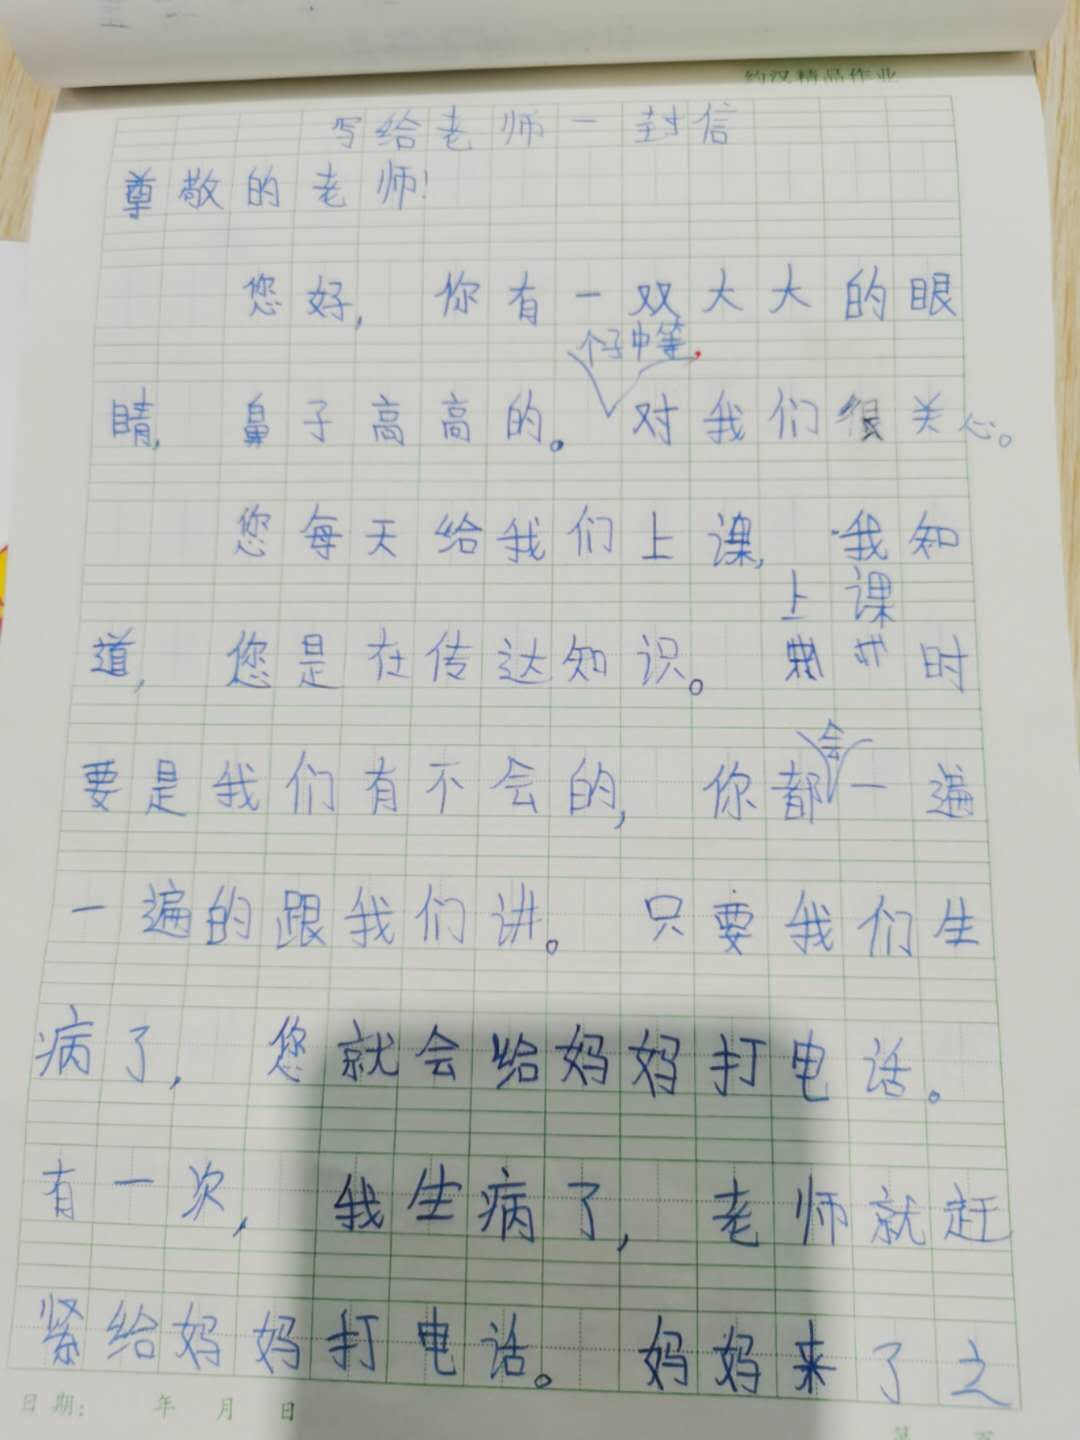 约汉精品作业
写给老师一封信
尊敬的老师!
您好,你有一双大大的眼
个子中等,
睛,鼻子高高的。对我们很关心。
您每天给我们上课,我知
上课
道,您是在传达知识。时
会
要是我们有不会的,你都一遍
一遍的跟我们讲。只要我们生
病了,您就会给妈妈打电话。
有一次,我生病了,老师就赶
紧给妈妈打电话。妈妈来了之
日期: 年 月 日